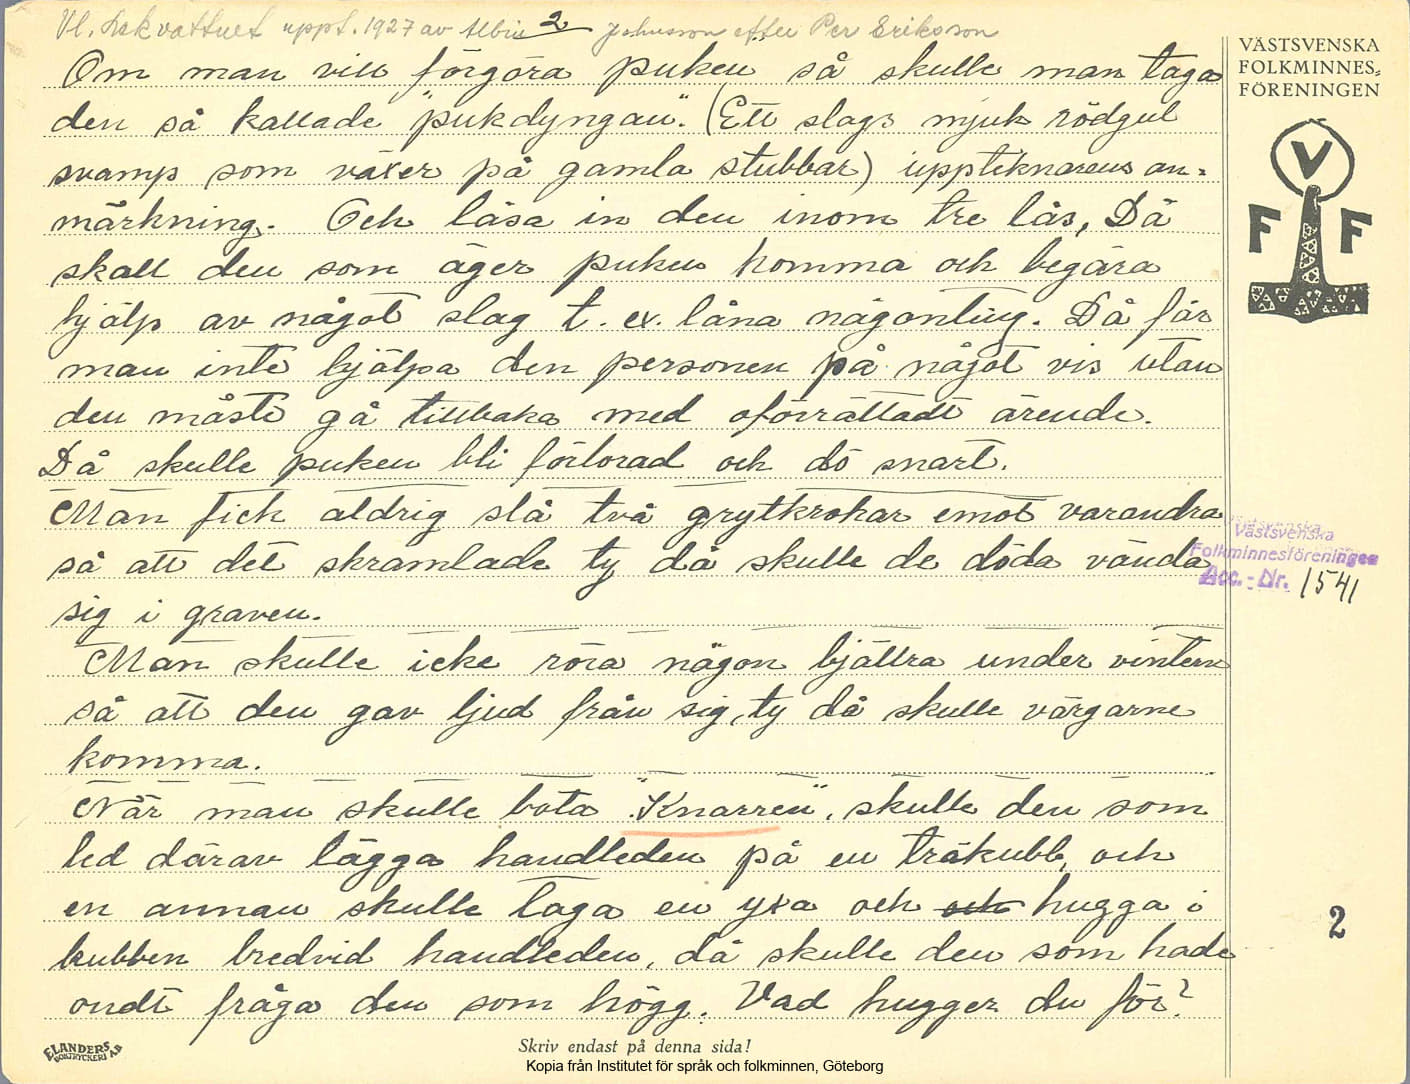 uppt. 1927 av Albin 2 Johnsson efter Per Eriksson
Om man vill förgöra puken så skulle man taga
den så kallade "pukdyngan". (Ett slags mjuk rödgul
svamp som växer på gamla stubbar) uppteknarens an=
märkning. Och låsa in den inom tre lås, Då
skall den som äger puken komma och begära
hjälp av något slag t. ex. låna någonting. Då får
man inte hjälpa den personen på något vis utan
den måste gå tillbaka med oförrättadt ärende.
Då skulle puken bli förlorad och dö snart.
Man fick aldrig slå två grytkrokar emot varandra
så att det skramlade ty då skulle de döda vända
sig i graven.
Man skulle icke röra någon bjällra under vintern
så att den gav ljud från sig, ty då skulle vargarne
komma.
När man skulle bota "Knarren", skulle den som
led därav lägga handleden på en träkubb, och
en annan skulle taga en yxa och och hugga i
kubben bredvid handleden, då skulle den som hade
ondt fråga den som högg. Vad hugger du för?
VÄSTSVENSKA
FOLKMINNES=
FÖRENINGEN
V
F F
Västsvenska
Folkminnesföreningen
Acc.-Nr. 1541
2
ELANDERS
BOKTRYCKERI A.B
Skriv endast på denna sida!
Kopia från Institutet för språk och folkminnen, Göteborg